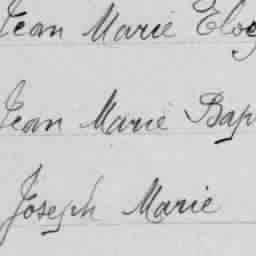 Jean Marie Elog
Jean Marie Bap
Joseph Marie